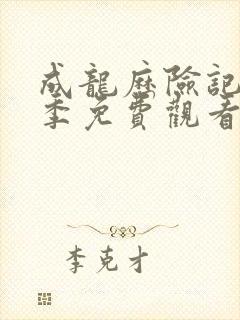 成龍歷險記
季免費觀看
李克才